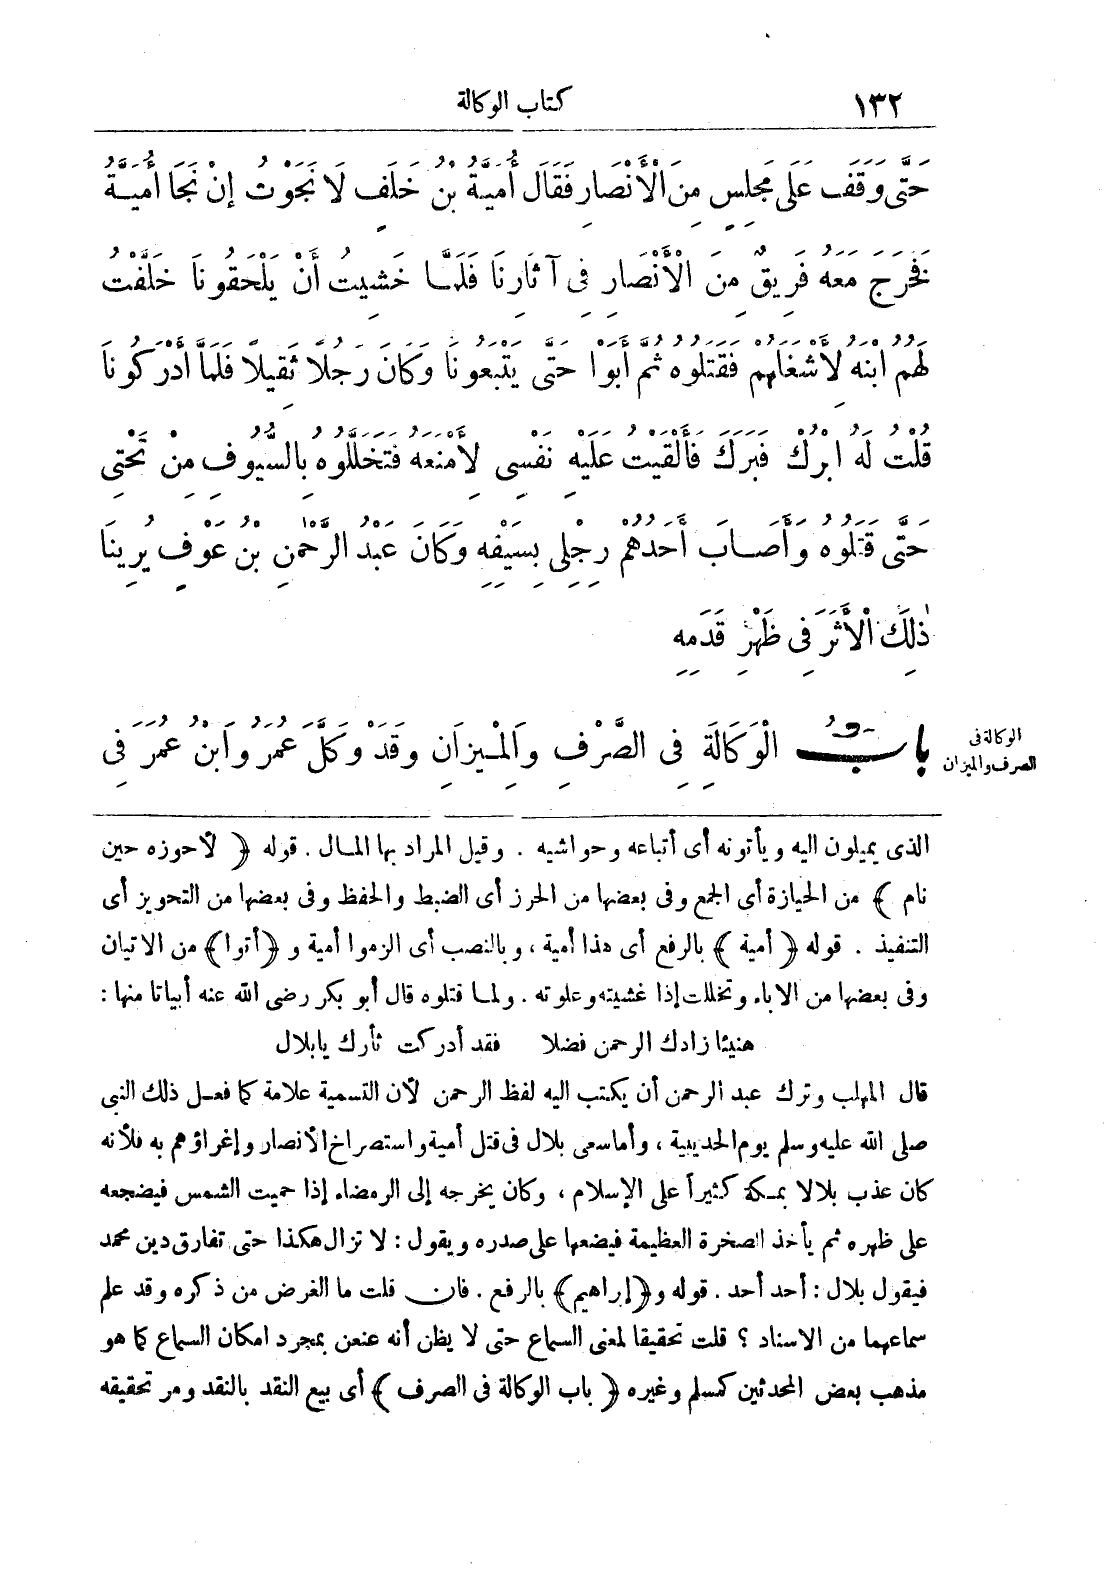 ١٣٢
كتاب الوكالة
حَتَّى وَقَفَ عَلَى مَجْلِسٍ مِنَ الْأَنْصَارِ فَقَالَ أُمَيَّةُ بْنُ خَلَفٍ لَا نَجَوْتُ إِنْ نَجَا أُمَيَّةُ
فَخَرَجَ مَعَهُ فَرِيقٌ مِنَ الْأَنْصَارِ فِى آثَارِنَا فَلَمَّا خَشِيتُ أَنْ يَلْحَقُونَا خَلَّفْتُ
لَهُمُ ابْنَهُ لِأَشْغَلَهُمْ فَقَتَلُوهُ ثُمَّ أَبَوْا حَتَّى يَتْبَعُونَا وَكَانَ رَجُلًا ثَقِيلًا فَلَمَّا أَدْرَكُونَا
قُلْتُ لَهُ ابْرُكْ فَبَرَكَ فَأَلْقَيْتُ عَلَيْهِ نَفْسِى لِأَمْنَعَهُ فَتَخَلَّلُوهُ بِالسُّيُوفِ مِنْ تَحْتِى
حَتَّى قَتَلُوهُ وَأَصَابَ أَحَدُهُمْ رِجْلِى بِسَيْفِهِ وَكَانَ عَبْدُ الرَّحْمٰنِ بْنُ عَوْفٍ يُرِينَا
ذٰلِكَ الْأَثَرَ فِى ظَهْرِ قَدَمِهِ
بابُ الْوَكَالَةِ فِى الصَّرْفِ وَالْمِيزَانِ وَقَدْ وَكَّلَ عُمَرُ وَابْنُ عُمَرَ فِى
الوكالة فى
الصرف والميزان
الذى يميلون اليه ويأتونه أى أتباعه وحواشيه . وقيل المراد بها المال . قوله ﴿ لأحوزه حين
نام ﴾ من الحيازة أى الجمع وفى بعضها من الحرز أى الضبط والحفظ وفى بعضها من التحويز أى
التنفيذ . قوله ﴿ أمية ﴾ بالرفع أى هذا أمية ، وبالنصب أى الزموا أمية و ﴿أتوا﴾ من الاتيان
وفى بعضها من الاباء وتخللت إذا غشيته وعلوته . ولما قتلوه قال أبو بكر رضى الله عنه أبياتا منها :
هنيئا زادك الرحمن فضلا فقد أدركت ثأرك يابلال
قال المهلب وترك عبد الرحمن أن يكتب اليه لفظ الرحمن لأن التسمية علامة كما فعل ذلك النبى
صلى الله عليه وسلم يوم الحديبية ، وأما سعى بلال فى قتل أمية واستصراخ الأنصار وإغراؤهم به فلأنه
كان عذب بلالا بمكة كثيراً على الإسلام ، وكان يخرجه إلى الرمضاء إذا حميت الشمس فيضجعه
على ظهره ثم يأخذ الصخرة العظيمة فيضعها على صدره ويقول : لا تزال هكذا حتى تفارق دين محمد
فيقول بلال : أحد أحد . قوله و﴿إبراهيم﴾ بالرفع . فان قلت ما الغرض من ذكره وقد علم
سماعهما من الاسناد ؟ قلت تحقيقا لمعنى السماع حتى لا يظن أنه عنعن بمجرد امكان السماع كما هو
مذهب بعض المحدثين كمسلم وغيره ﴿ باب الوكالة فى الصرف ﴾ أى بيع النقد بالنقد ومر تحقيقه